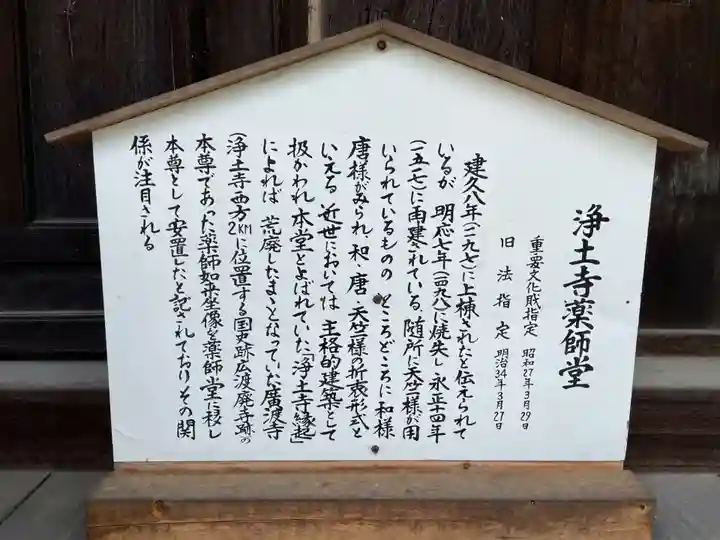 浄土寺薬師堂
重要文化財指定 昭和27年3月29日
旧法指定 明治34年3月27日
建久八年(一一九七)に上棟されたと伝えられて
いるが 明応七年(一四九八)に焼失し 永正十四年
(一五一七)に再建されている。随所に天竺様が用
いられているものの ところどころに和様
唐様がみられ、和・唐・天竺様の折衷形式と
いえる 近世においては 主格的建築として
扱かわれ 本堂とよばれていた「浄土寺縁起」
によれば 荒廃したままとなっていた廣渡寺
(浄土寺西方2KMに位置する国史跡広渡廃寺跡)の
本尊であった薬師如来坐像を薬師堂に移し
本尊として安置したと記されており その関
係が注目される